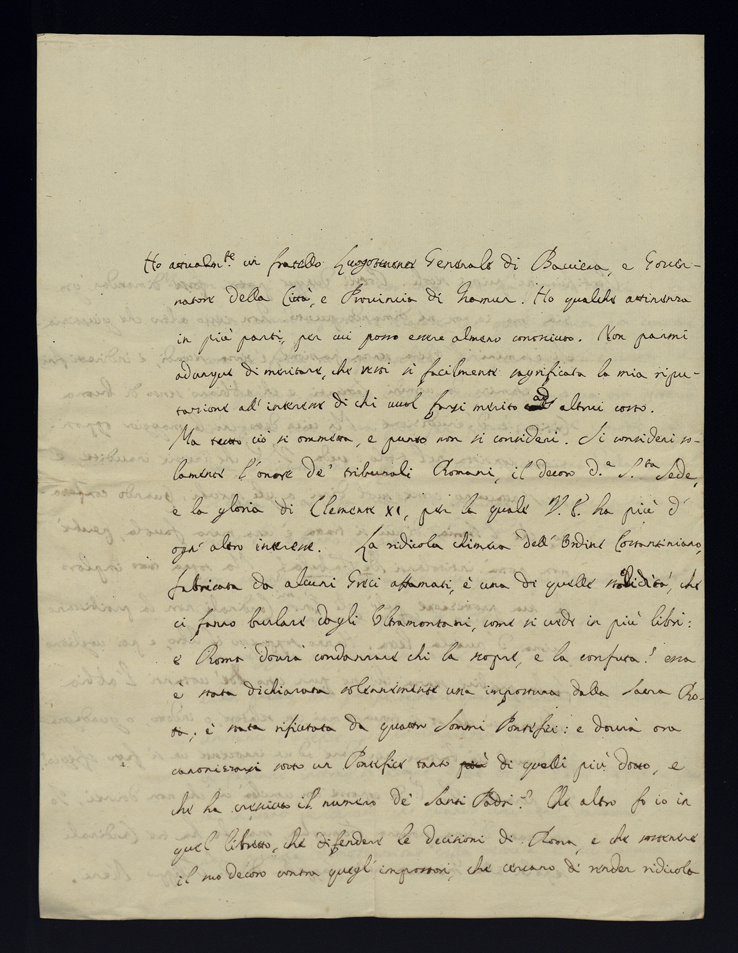 Ho attualm.te un fratello Luogotenente Generale di Baviera, e Gover-
natore della Città, e Provincia di Namur. Ho qualche attinenza
in più parti, per cui posso essere almeno conosciuto. Non parmi
adunque di meritare, che resti sì facilmente sagrificata la mia ripu-
tazione ad' interesse di chi vuol farsi merito ad altrui costo.
Ma tutto ciò si ommetta, e punto non si consideri. Si consideri so-
lamente l'onore de' tribunali Romani, il decoro d.a S.ta Sede,
e la gloria di Clemente XI, per la quale V. E. ha più d'
ogn' altro interesse. La ridicola chimera dell' Ordine Costantiniano,
fabricata da alcuni Greci affamati, è una di quelle che
ci fanno burlare dagli Oltramontani, come si vede in più libri:
e Roma dourà condannare chi la scopre, e la confuta? essa
è stata dichiarata solennemente una impostura dalla Sacra Ro-
ta; è stata rifiutata da quattro Sommi Pontefici: e dourà ora
canonizarsi sotto un Pontefice tanto di quelli più dotto, e
che ha cresciuto il numero de' Santi Padri? Che altro fo io in
quel libretto, che difendere le decisioni di Roma, e che sostenere
il suo decoro contra quegl' impostori, che cercano di render ridicola